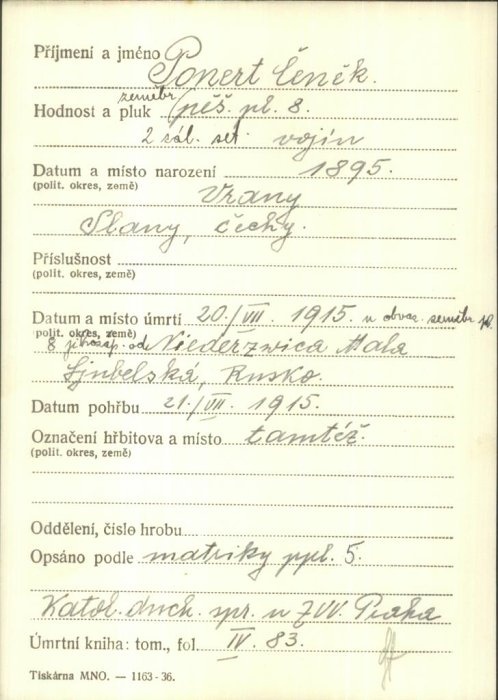 Příjmení a jméno Ponert Čeněk.
zeměbr.
Hodnost a pluk pěš. pl. 8.
2 vojín
Datum a místo narození 1895.
(polit. okres, země) Vrany
Slany, Čechy.
Příslušnost
(polit. okres, země)
Datum a místo úmrtí 20./VII. 1915. u obvaz. zeměbr. pl.
(polit. okres, země)
8 od Niederzwica Mala
Ljubelská, Rusko.
Datum pohřbu 21./VII. 1915.
Označení hřbitova a místo tamtéž.
(polit. okres, země)
Oddělení, číslo hrobu
Opsáno podle matriky ppl. 5.
Katol. duch. spr. u ZVV. Praha
Úmrtní kniha: tom., fol. IV. 83.
Tiskárna MNO. — 1163-36.